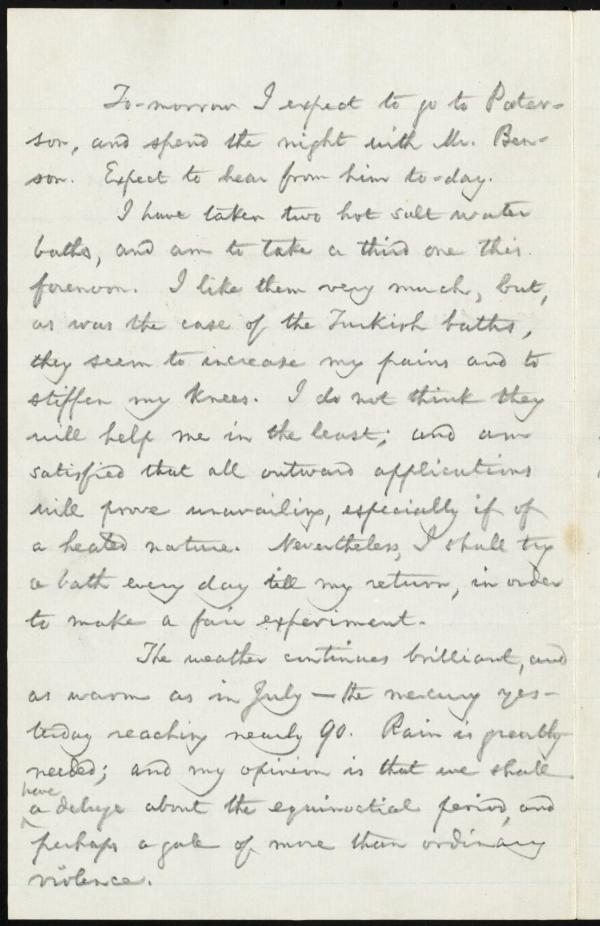 To-morrow I expect to go to Pater-
son, and spend the night with Mr. Ben-
son. Expect to hear from him to-day.
I have taken two hot salt water
baths, and am to take a third one this
forenoon. I like them very much, but,
as was the case of the Turkish baths,
they seem to increase my pains and to
stiffen my knees. I do not think they
will help me in the least; and am
satisfied that all outward applications
will prove unavailing, especially if of
a heated nature. Nevertheless, I shall try
a bath every day till my return, in order
to make a fair experiment.
The weather continues brilliant, and
as warm as in July — the mercury yes-
terday reaching nearly 90. Rain is greatly
needed; and my opinion is that we shall
have
a deluge about the equinoctial period, and
perhaps a gale of more than ordinary
violence.